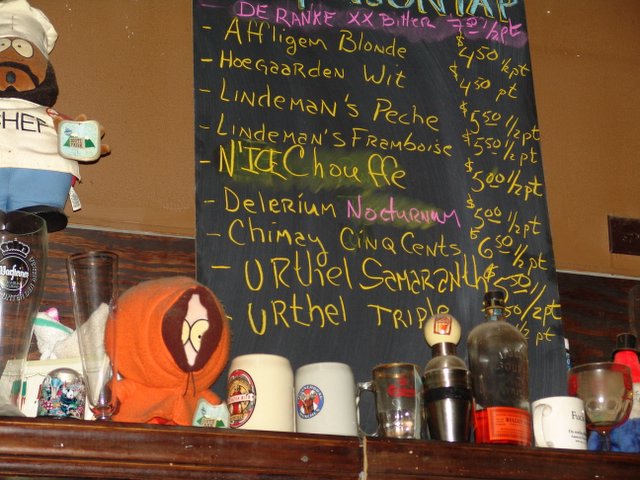 ON TAP
DE RANKE XX Bitter 7.50 1/2 pt
- Affligem Blonde $4.50 1/2 pt
- Hoegaarden Wit $4.50 pt
- Lindeman's Peche $5.50 1/2 pt
- Lindeman's Framboise $5.50 1/2 pt
- N'ICE Chouffe 5.00 1/2 pt
- Delerium Nocturnum $5.00 1/2 pt
- Chimay Cinq Cents 6.50 1/2 pt
- URthel Samaranth $5.50 1/2 pt
- URthel Triple 1/2 pt
CHEF